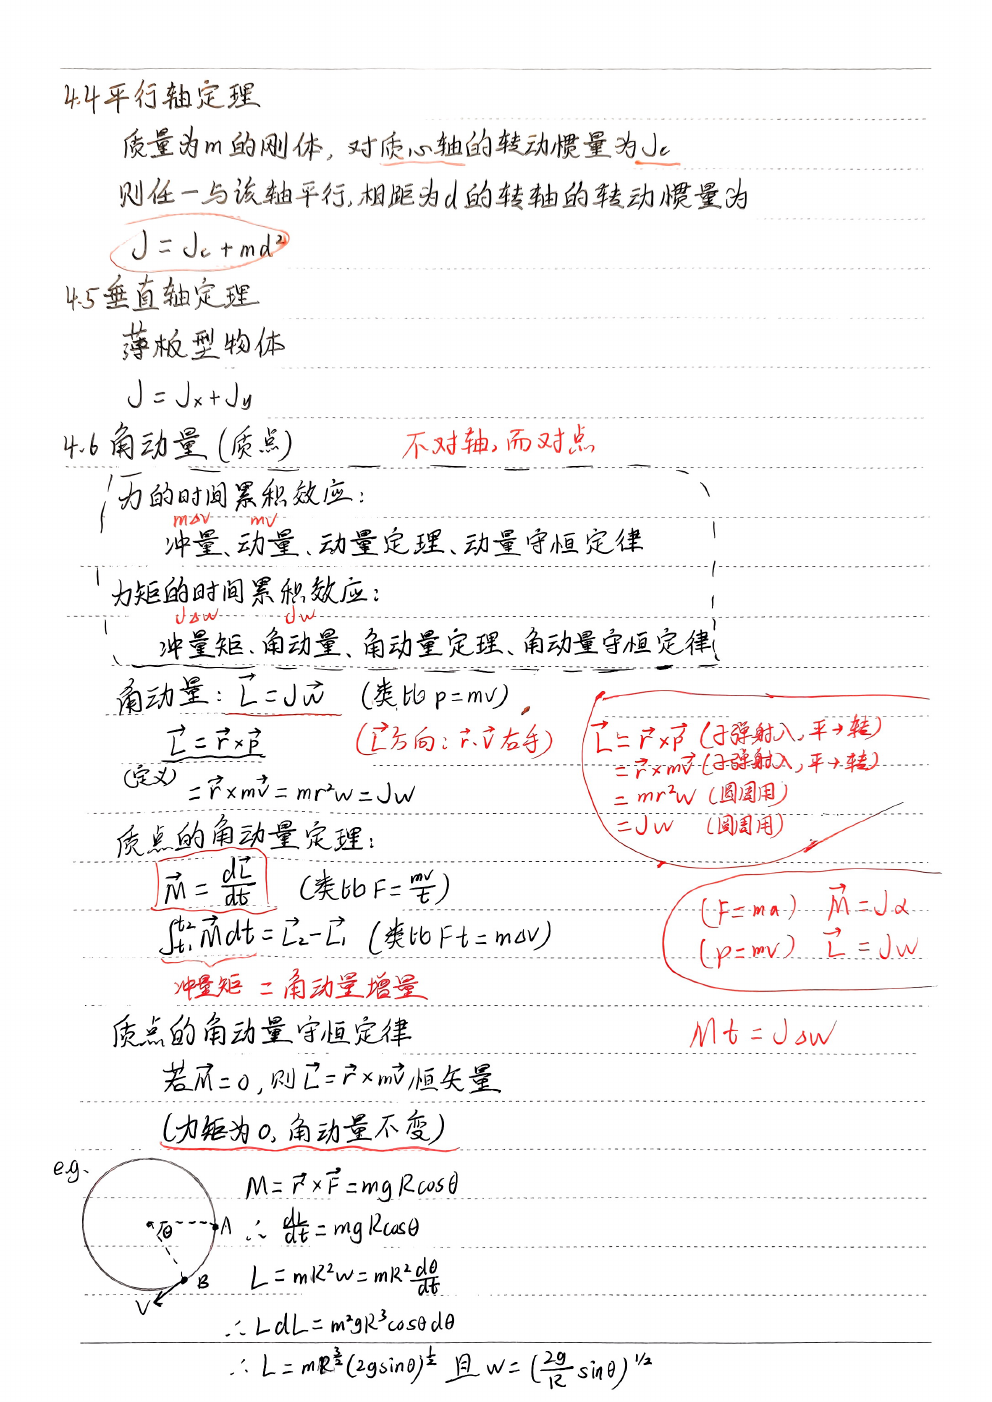 4.4 平行轴定理
质量为m的刚体, 对质心轴的转动惯量为Jc
则任一与该轴平行, 相距为d的转轴的转动惯量为
J = Jc + md²
4.5 垂直轴定理
薄板型物体
J = Jx + Jy
4.6 角动量 (质点) 不对轴, 而对点
力的时间累积效应:
mΔv mv
冲量、动量、动量定理、动量守恒定律
力矩的时间累积效应:
JΔw Jw
冲量矩、角动量、角动量定理、角动量守恒定律
角动量: L⃗ = Jw⃗ (类比 p = mv)
L⃗ = r⃗ × p⃗ (L⃗方向: r⃗.v⃗右手)
(定义)
= r⃗ × mv⃗ = mr²w = Jw
L⃗ = r⃗ × p⃗ (子弹射入, 平→转)
= r⃗ × mv⃗ (子弹射入, 平→转)
= mr²w (圆周用)
= Jw (圆周用)
质点的角动量定理:
M⃗ = dL⃗/dt (类比 F = mv/t)
∫t₁^t₂ M⃗dt = L⃗₂ - L⃗₁ (类比 Ft = mΔv)
冲量矩 = 角动量增量
(F = ma) M⃗ = Jα
(p = mv) L⃗ = Jw
质点的角动量守恒定律
Mt = JΔw
若M⃗ = 0, 则L⃗ = r⃗ × mv⃗ 恒矢量
(力矩为0, 角动量不变)
e.g.
M = r⃗ × F⃗ = mgRcosθ
θ A
∴ dL/dt = mgRcosθ
B
V
L = mR²w = mR² dθ/dt
∴ LdL = m²gR³cosθdθ
∴ L = mR^(3/2) (2gsinθ)^(1/2) 且 w = (2g/R sinθ)^(1/2)